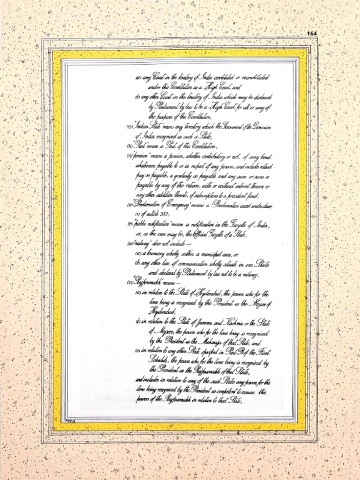 164
(ii) any Court in the territory of India constituted or reconstituted
under this Constitution as a High Court, and
(b) any other Court in the territory of India which may be declared
by Parliament by law to be a High Court for all or any of
the purposes of this Constitution;
(15) "Indian State" means any territory which the Government of the Dominion
of India recognised as such a State;
(16) "Part" means a Part of this Constitution;
(17) "pension" means a pension, whether contributory or not, of any kind
whatsoever payable to or in respect of any person, and includes retired
pay so payable, a gratuity so payable and any sum or sums so
payable by way of the return, with or without interest thereon or
any other addition thereto, of subscriptions to a provident fund;
(18) "Proclamation of Emergency" means a Proclamation issued under clause
(1) of article 352;
(19) "public notification" means a notification in the Gazette of India,
or, as the case may be, the Official Gazette of a State;
(20) "railway" does not include—
(a) a tramway wholly within a municipal area, or
(b) any other line of communication wholly situate in one State
and declared by Parliament by law not to be a railway;
(21) "Rajpramukh" means—
(a) in relation to the State of Hyderabad, the person who for the
time being is recognised by the President as the Nizam of
Hyderabad;
(b) in relation to the State of Jammu and Kashmir or the State
of Mysore, the person who for the time being is recognised
by the President as the Maharaja of that State; and
(c) in relation to any other State specified in Part B of the First
Schedule, the person who for the time being is recognised by
the President as the Rajpramukh of that State,
and includes in relation to any of the said States any person for the
time being recognised by the President as competent to exercise the
powers of the Rajpramukh in relation to that State;